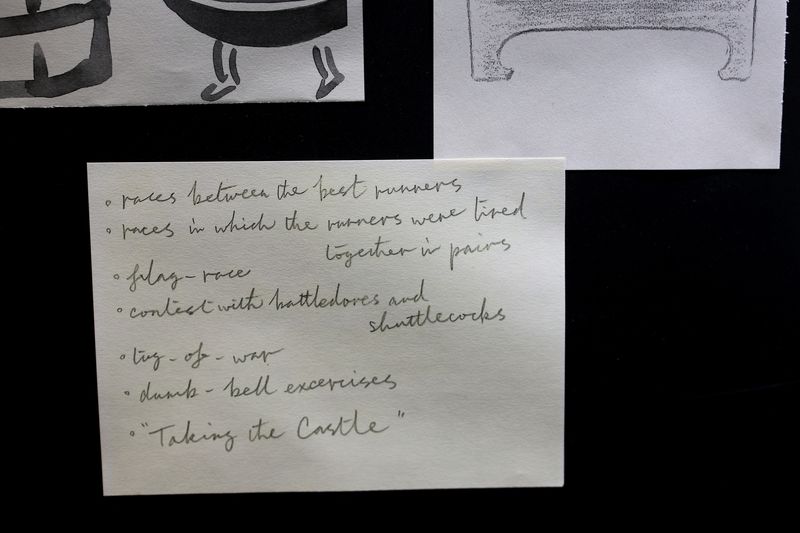 ◦ races between the best runners
◦ races in which the runners were tired
together in pairs
◦ flag-race
◦ contest with battledores and
shuttlecocks
◦ tug-of-war
◦ dumb-bell excercises
◦ "Taking the Castle"